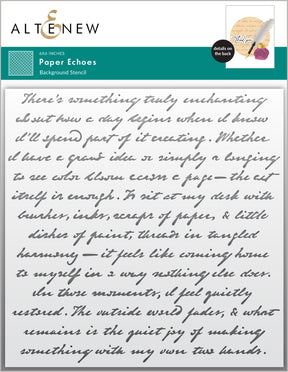 ALTENEW
6X6 INCHES
Paper Echoes
Background Stencil
details on the back
There's something truly enchanting
about how a day begins when I know
I'll spend part of it creating. Whether
I have a grand idea or simply a longing
to see color bloom across a page — the act
itself is enough. To sit at my desk with
brushes, inks, scraps of paper, & little
dishes of paint, threads in tangled
harmony — it feels like coming home
to myself in a way nothing else does.
In those moments, I feel quietly
restored. The outside world fades, & what
remains is the quiet joy of making
something with my own two hands.